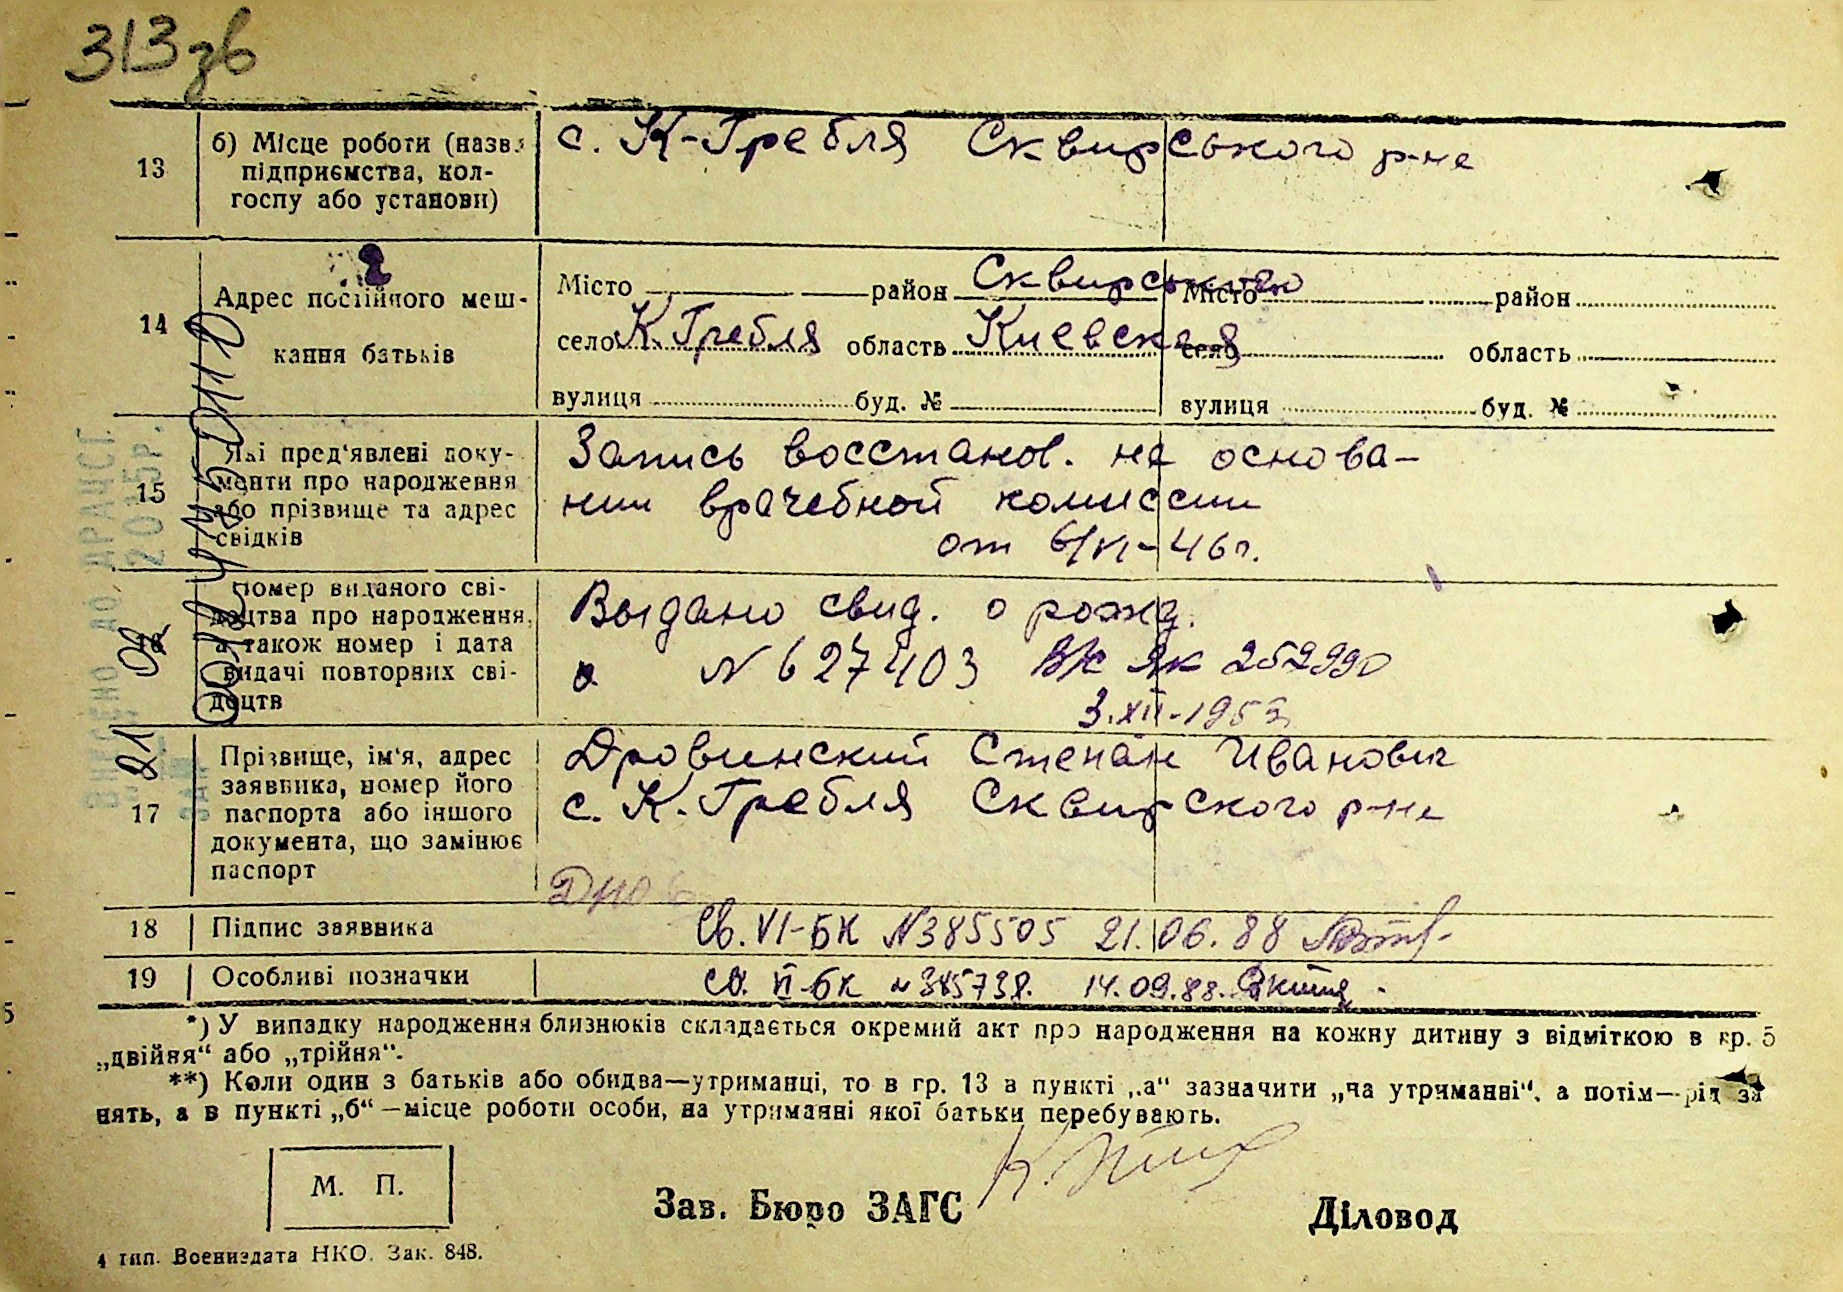 313зв
13
б) Місце роботи (назва
підприємства, кол-
госпу або установи)
с. К-Гребля Сквирського р-на
14
2
Адрес постійного меш-
кання батьків
Місто район Сквирського
село К. Гребля область Киевская
вулиця буд. №
Місто район
село область
вулиця буд. №
15
Які пред'явлені доку-
менти про народження
або прізвище та адрес
свідків
Запись восстанов. на основа-
нии врачебной комиссии
от 6/VI-46г.
Номер виданого сві-
доцтва про народження,
а також номер і дата
видачі повторних сві-
доцтв
Выдано свид. о рожд.
№ 627403 ЯК 252990
3.XII-1953
17
Прізвище, ім'я, адрес
заявника, номер його
паспорта або іншого
документа, що замінює
паспорт
Дровинский Степан Иванович
с. К. Гребля Сквирского р-на
18
Підпис заявника
Св. VI-БК №385505 21.06.88
19
Особливі позначки
св. VI-БК №385738. 14.09.88.
*) У випадку народження близнюків складається окремий акт про народження на кожну дитину з відміткою в гр. 5
„двійня“ або „трійня“.
**) Коли один з батьків або обидва—утриманці, то в гр. 13 в пункті „а“ зазначити „на утриманні“, а потім—рід за
нять, а в пункті „б“—місце роботи особи, на утриманні якої батьки перебувають.
М. П.
Зав. Бюро ЗАГС
Діловод
4 тип. Воениздата НКО. Зак. 848.